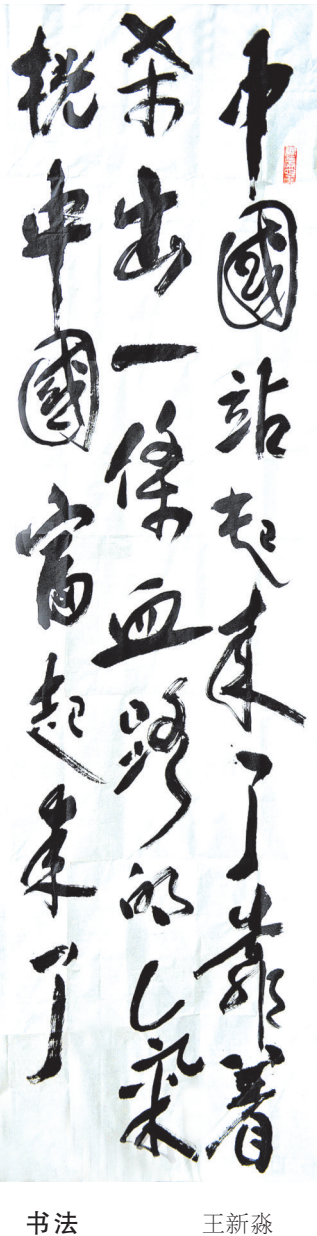 中國站起来了靠着
杀出一條血路的氣
中國富起来了
书法 王新淼